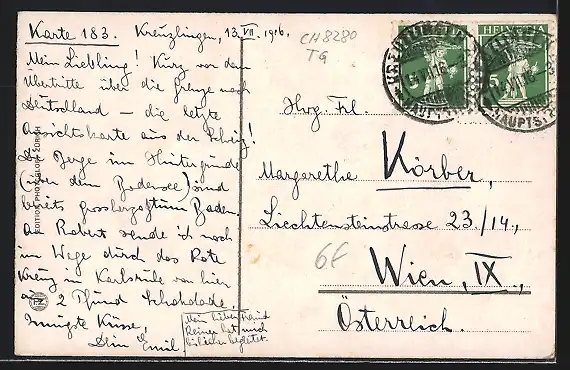 Karte 183. Kreuzlingen, 13. VII. 1916.
Mein Liebling! Kurz vor dem
Übertritte über die Grenze nach
Deutschland — die letzte
Ansichtskarte aus der Schweiz!
Die Berge im Hintergrunde
(über dem Bodensee) sind
bereits grossherzogtum Baden.
An Robert sende ich noch
im Wege durch das Rote
Kreuz in Karlsruhe von hier
aus 2 Pfund Schokolade.
Innigste Küsse,
Dein Emil.
Mein lieber Freund
Reiner hat mich
bisher begleitet.
EDITION PHOTOGLOB ZÜRICH
CH 8280
TG
HELVETIA
5
HAUPTST.
Hwg. Frl.
Margarethe Körber,
Liechtensteinstrasse 23/14,
Wien, IX.,
Österreich.
6f